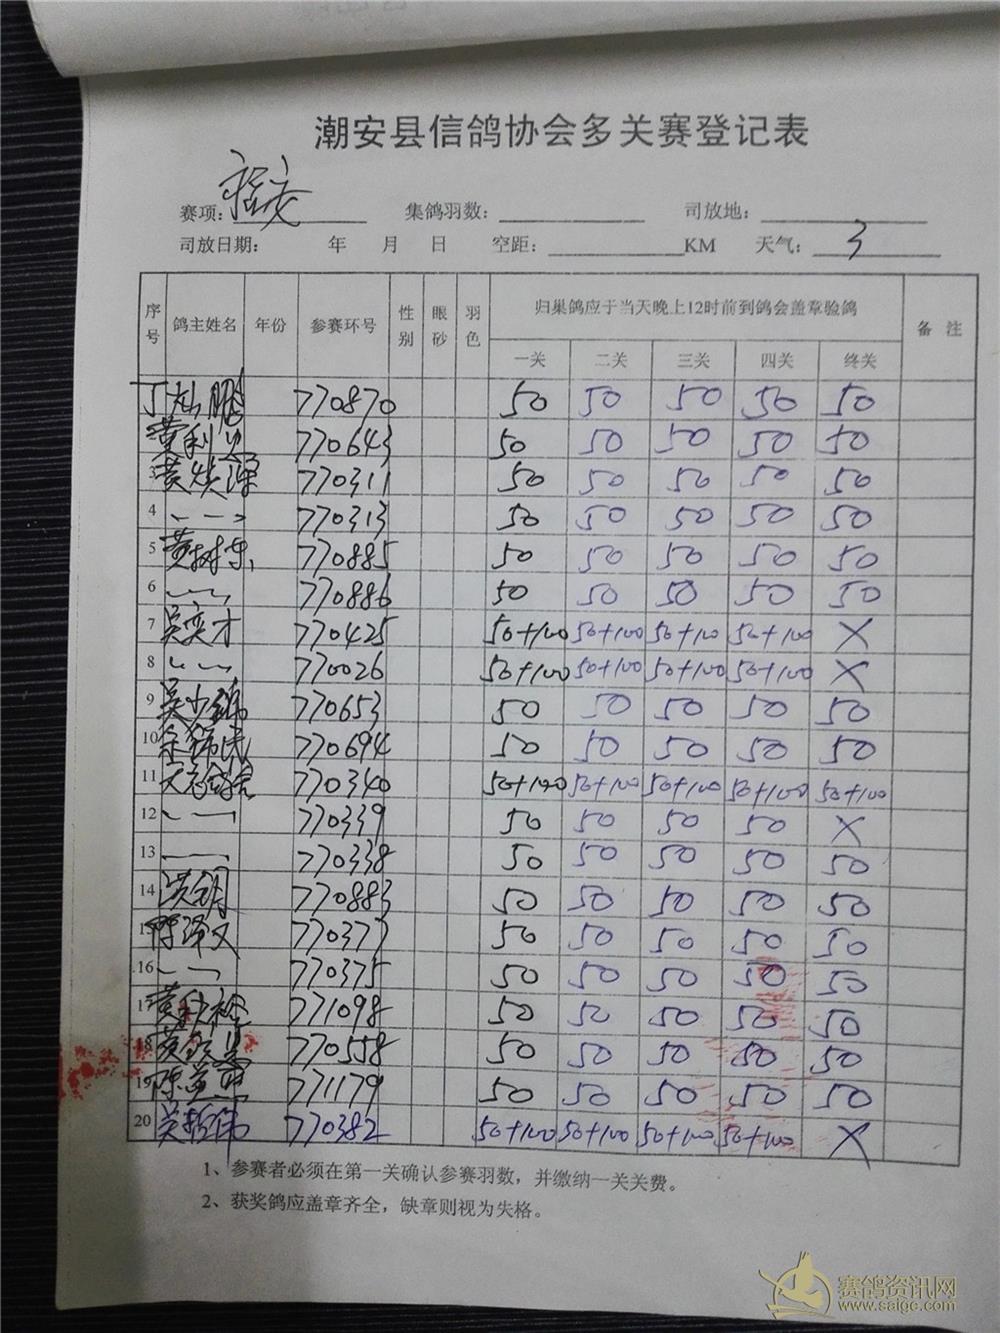 潮安县信鸽协会多关赛登记表
赛项: 集鸽羽数: 司放地:
司放日期: 年 月 日 空距: KM 天气: 3
序号 鸽主姓名 年份 参赛环号 性别 眼砂 羽色 归巢鸽应于当天晚上12时前到鸽会盖章验鸽 备注
一关 二关 三关 四关 终关
丁灿鹏 770870 50 50 50 50 50
黄利 770643 50 50 50 50 50
3 黄 770311 50 50 50 50 50
4 770313 50 50 50 50 50
5 黄树 770885 50 50 50 50 50
6 770886 50 50 50 50 50
7 吴奕才 770425 50+100 50+100 50+100 50+100 X
8 770026 50+100 50+100 50+100 50+100 X
9 吴少锦 770653 50 50 50 50 50
10 770694 50 50 50 50 50
11 770340 50+100 50+100 50+100 50+100 50+100
12 770339 50 50 50 50 X
13 770338 50 50 50 50 50
14 770883 50 50 50 50 50
15 陈泽文 770377 50 50 50 50 50
16 770375 50 50 50 50 50
17 黄 771098 50 50 50 50 50
18 黄 770558 50 50 50 50 50
19 陈 771179 50 50 50 50 50
20 吴哲伟 770382 50+100 50+100 50+100 50+100 X
1、参赛者必须在第一关确认参赛羽数，并缴纳一关关费。
2、获奖鸽应盖章齐全，缺章则视为失格。
赛鸽资讯网
www.saigc.com